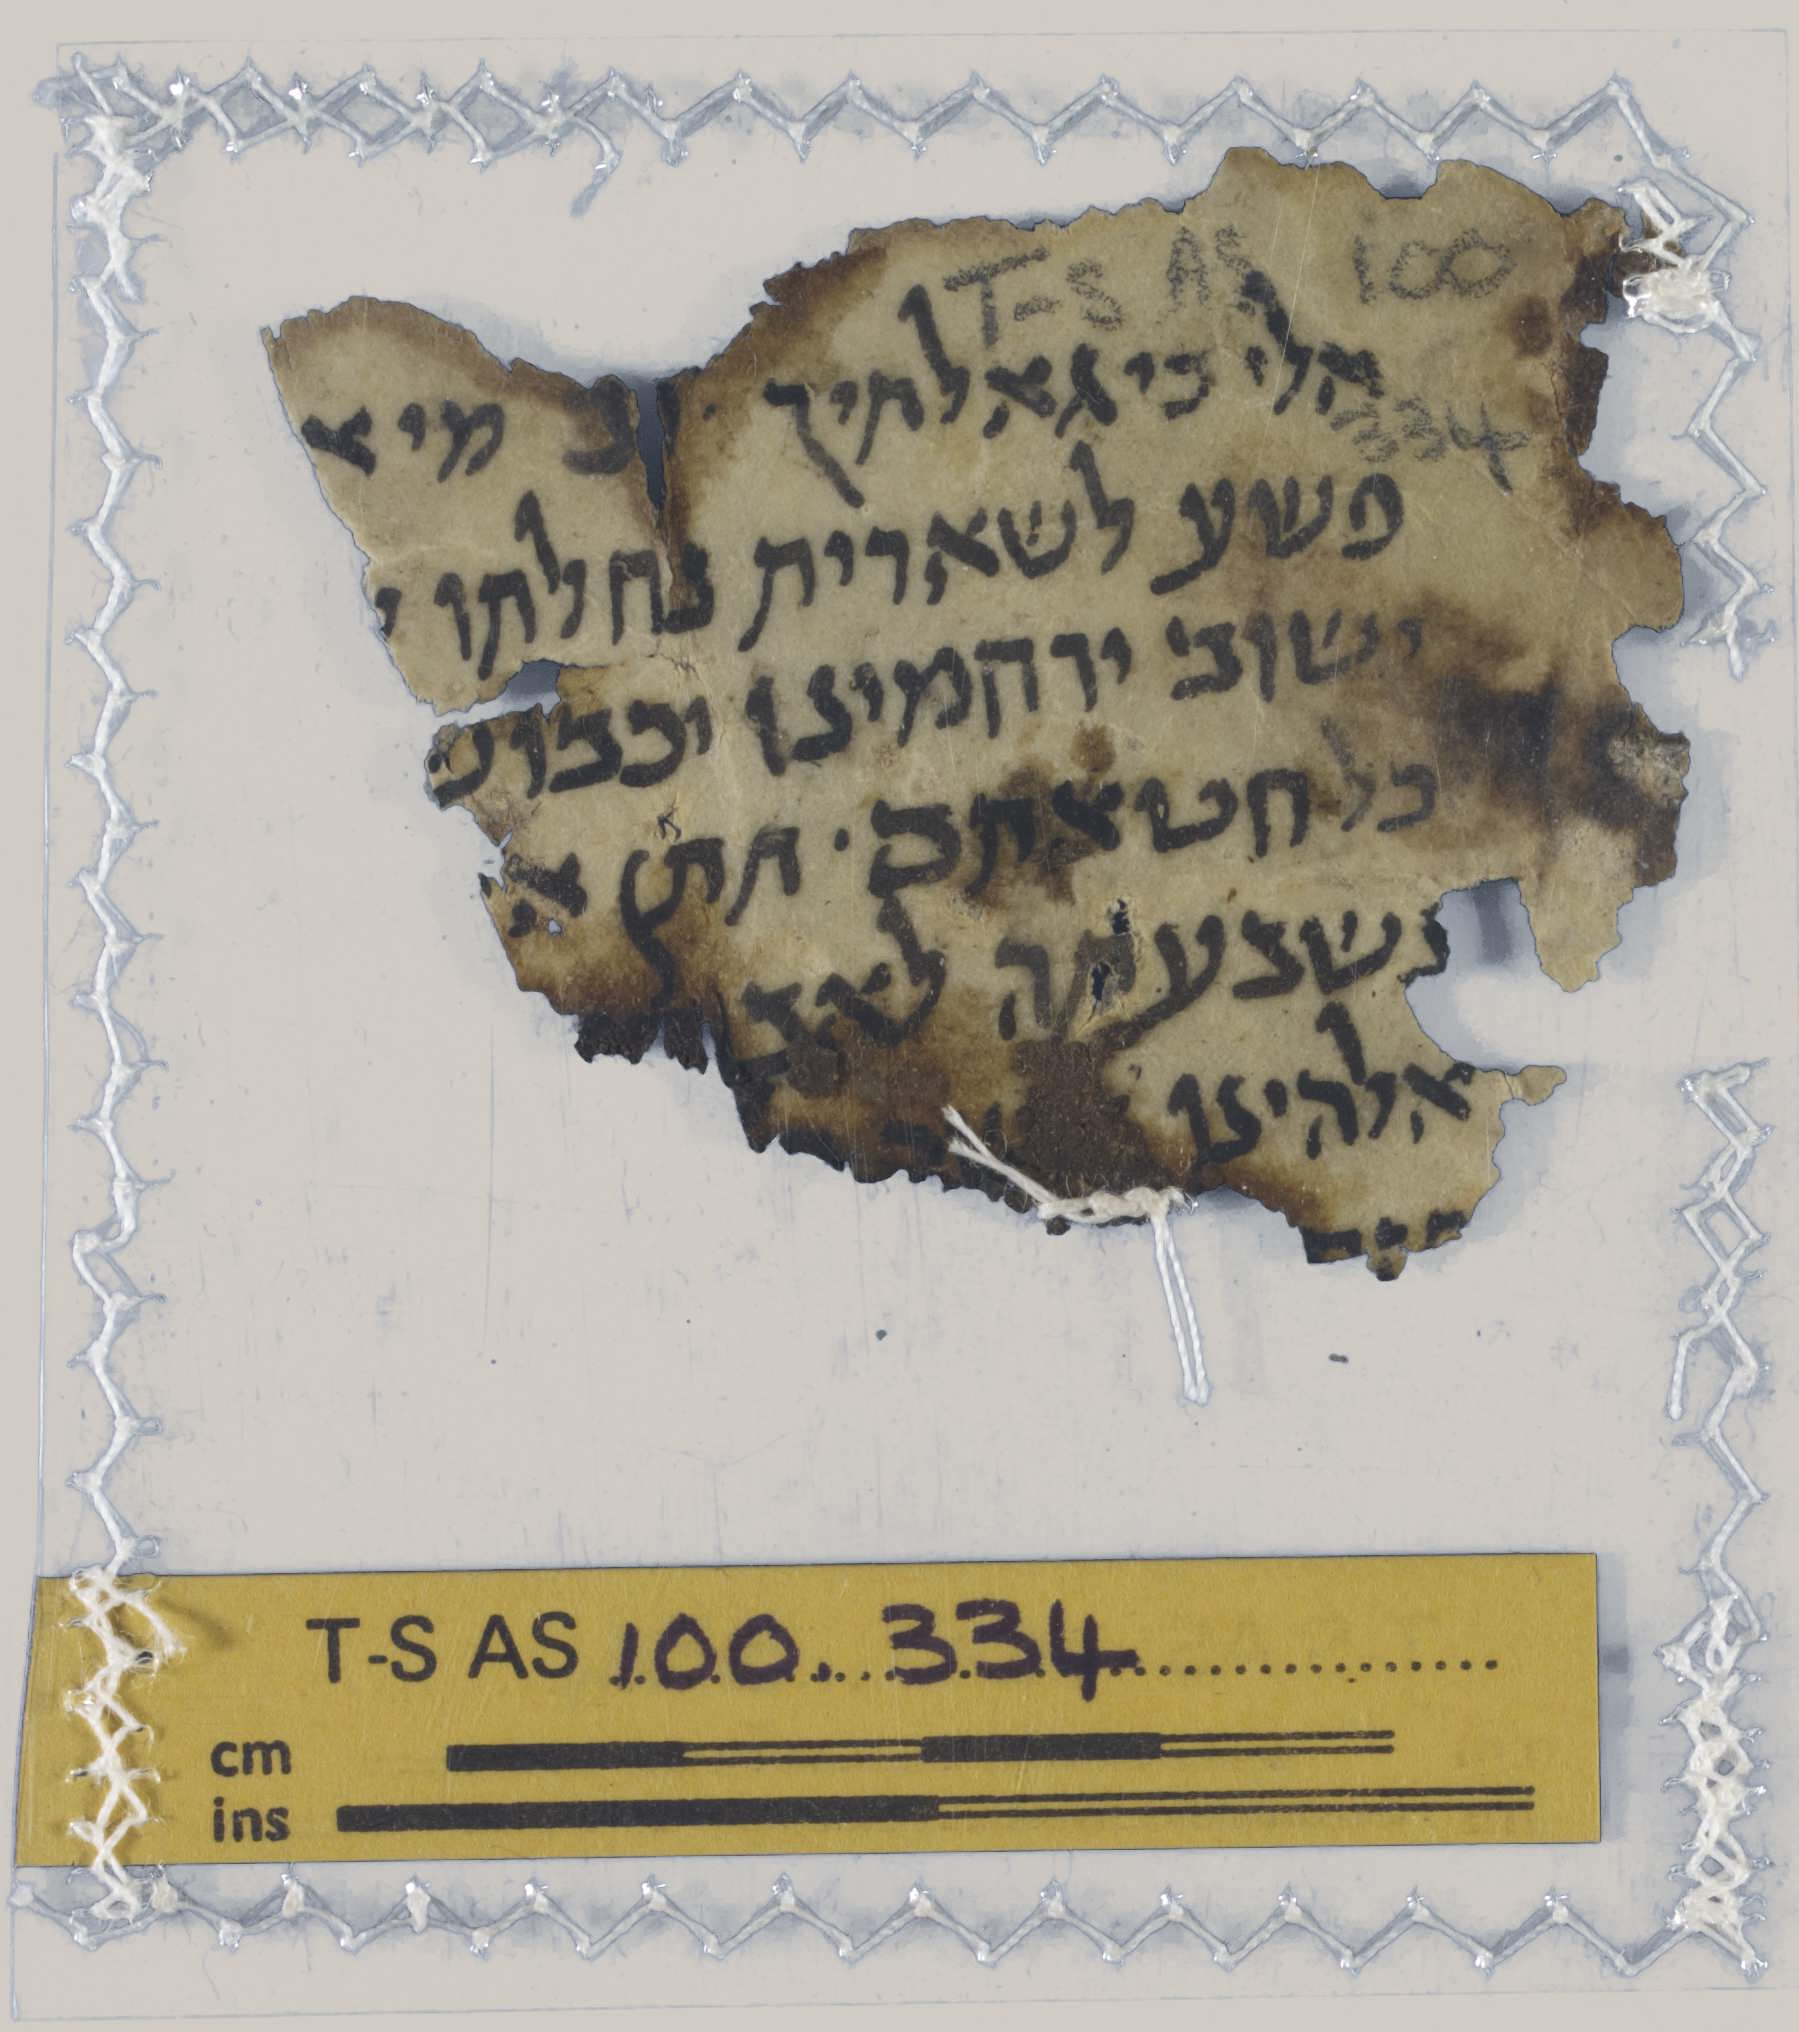 T-S AS 100
אלי כי גאלתיך · וכ מי א
334
פשע לשארית נחלתו
ישוב ירחמינו יכבוש
כל חטאתם · תתן א
נשבעתה לאב
אלהינו
T-S AS 100. 334
cm
ins